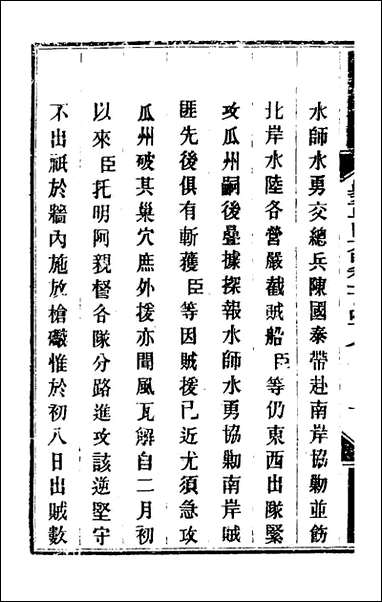 水師水勇交總兵陳國泰帶赴南岸協勦並飭
北岸水陸各營嚴截賊船臣等仍東西出隊緊
攻瓜州嗣後疊據探報水師水勇協勦南岸賊
匪先後俱有斬獲臣等因賊援已近尤須急攻
瓜州破其巢穴庶外援亦聞風瓦解自二月初
以來臣托明阿親督各隊分路進攻該逆堅守
不出祇於牆內施放槍礮惟於初八日出賊數